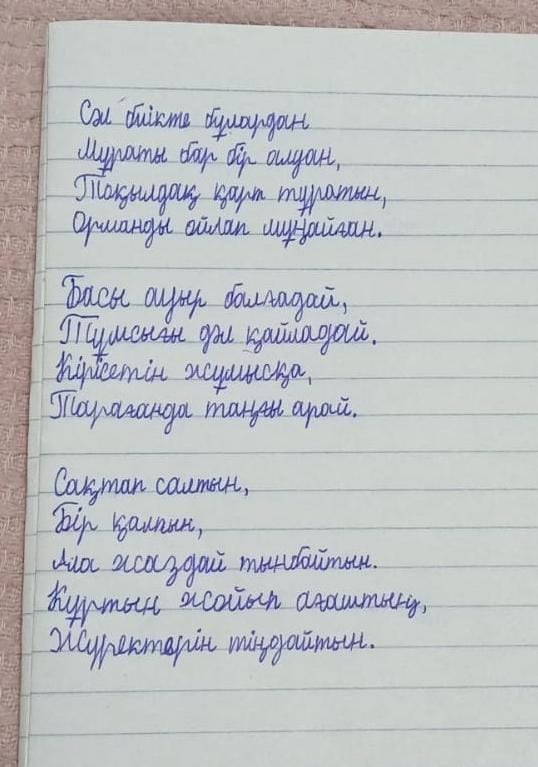 Сәл биікте бұлардан
Мұраты бар бір алдан,
Тоқылдақ қарт тұратын,
Орманды ойлап мұңайған.
Басы ауыр балғадай,
Тұмсығы дәл қайладай.
Кірісетін жұмысқа,
Тарағанда таңғы арай.
Сақтап салтын,
Бір қалпын,
Ала жаздай тынбайтын.
Құртын жойып ағаштың,
Жүректерін тыңдайтын.